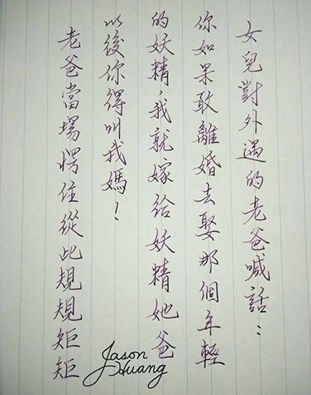 女兒對外遇的老爸喊話：
你如果敢離婚去娶那個年輕
的妖精，我就嫁給妖精她爸
以後你得叫我媽！
老爸當場愣住從此規規矩矩
Jason
Huang